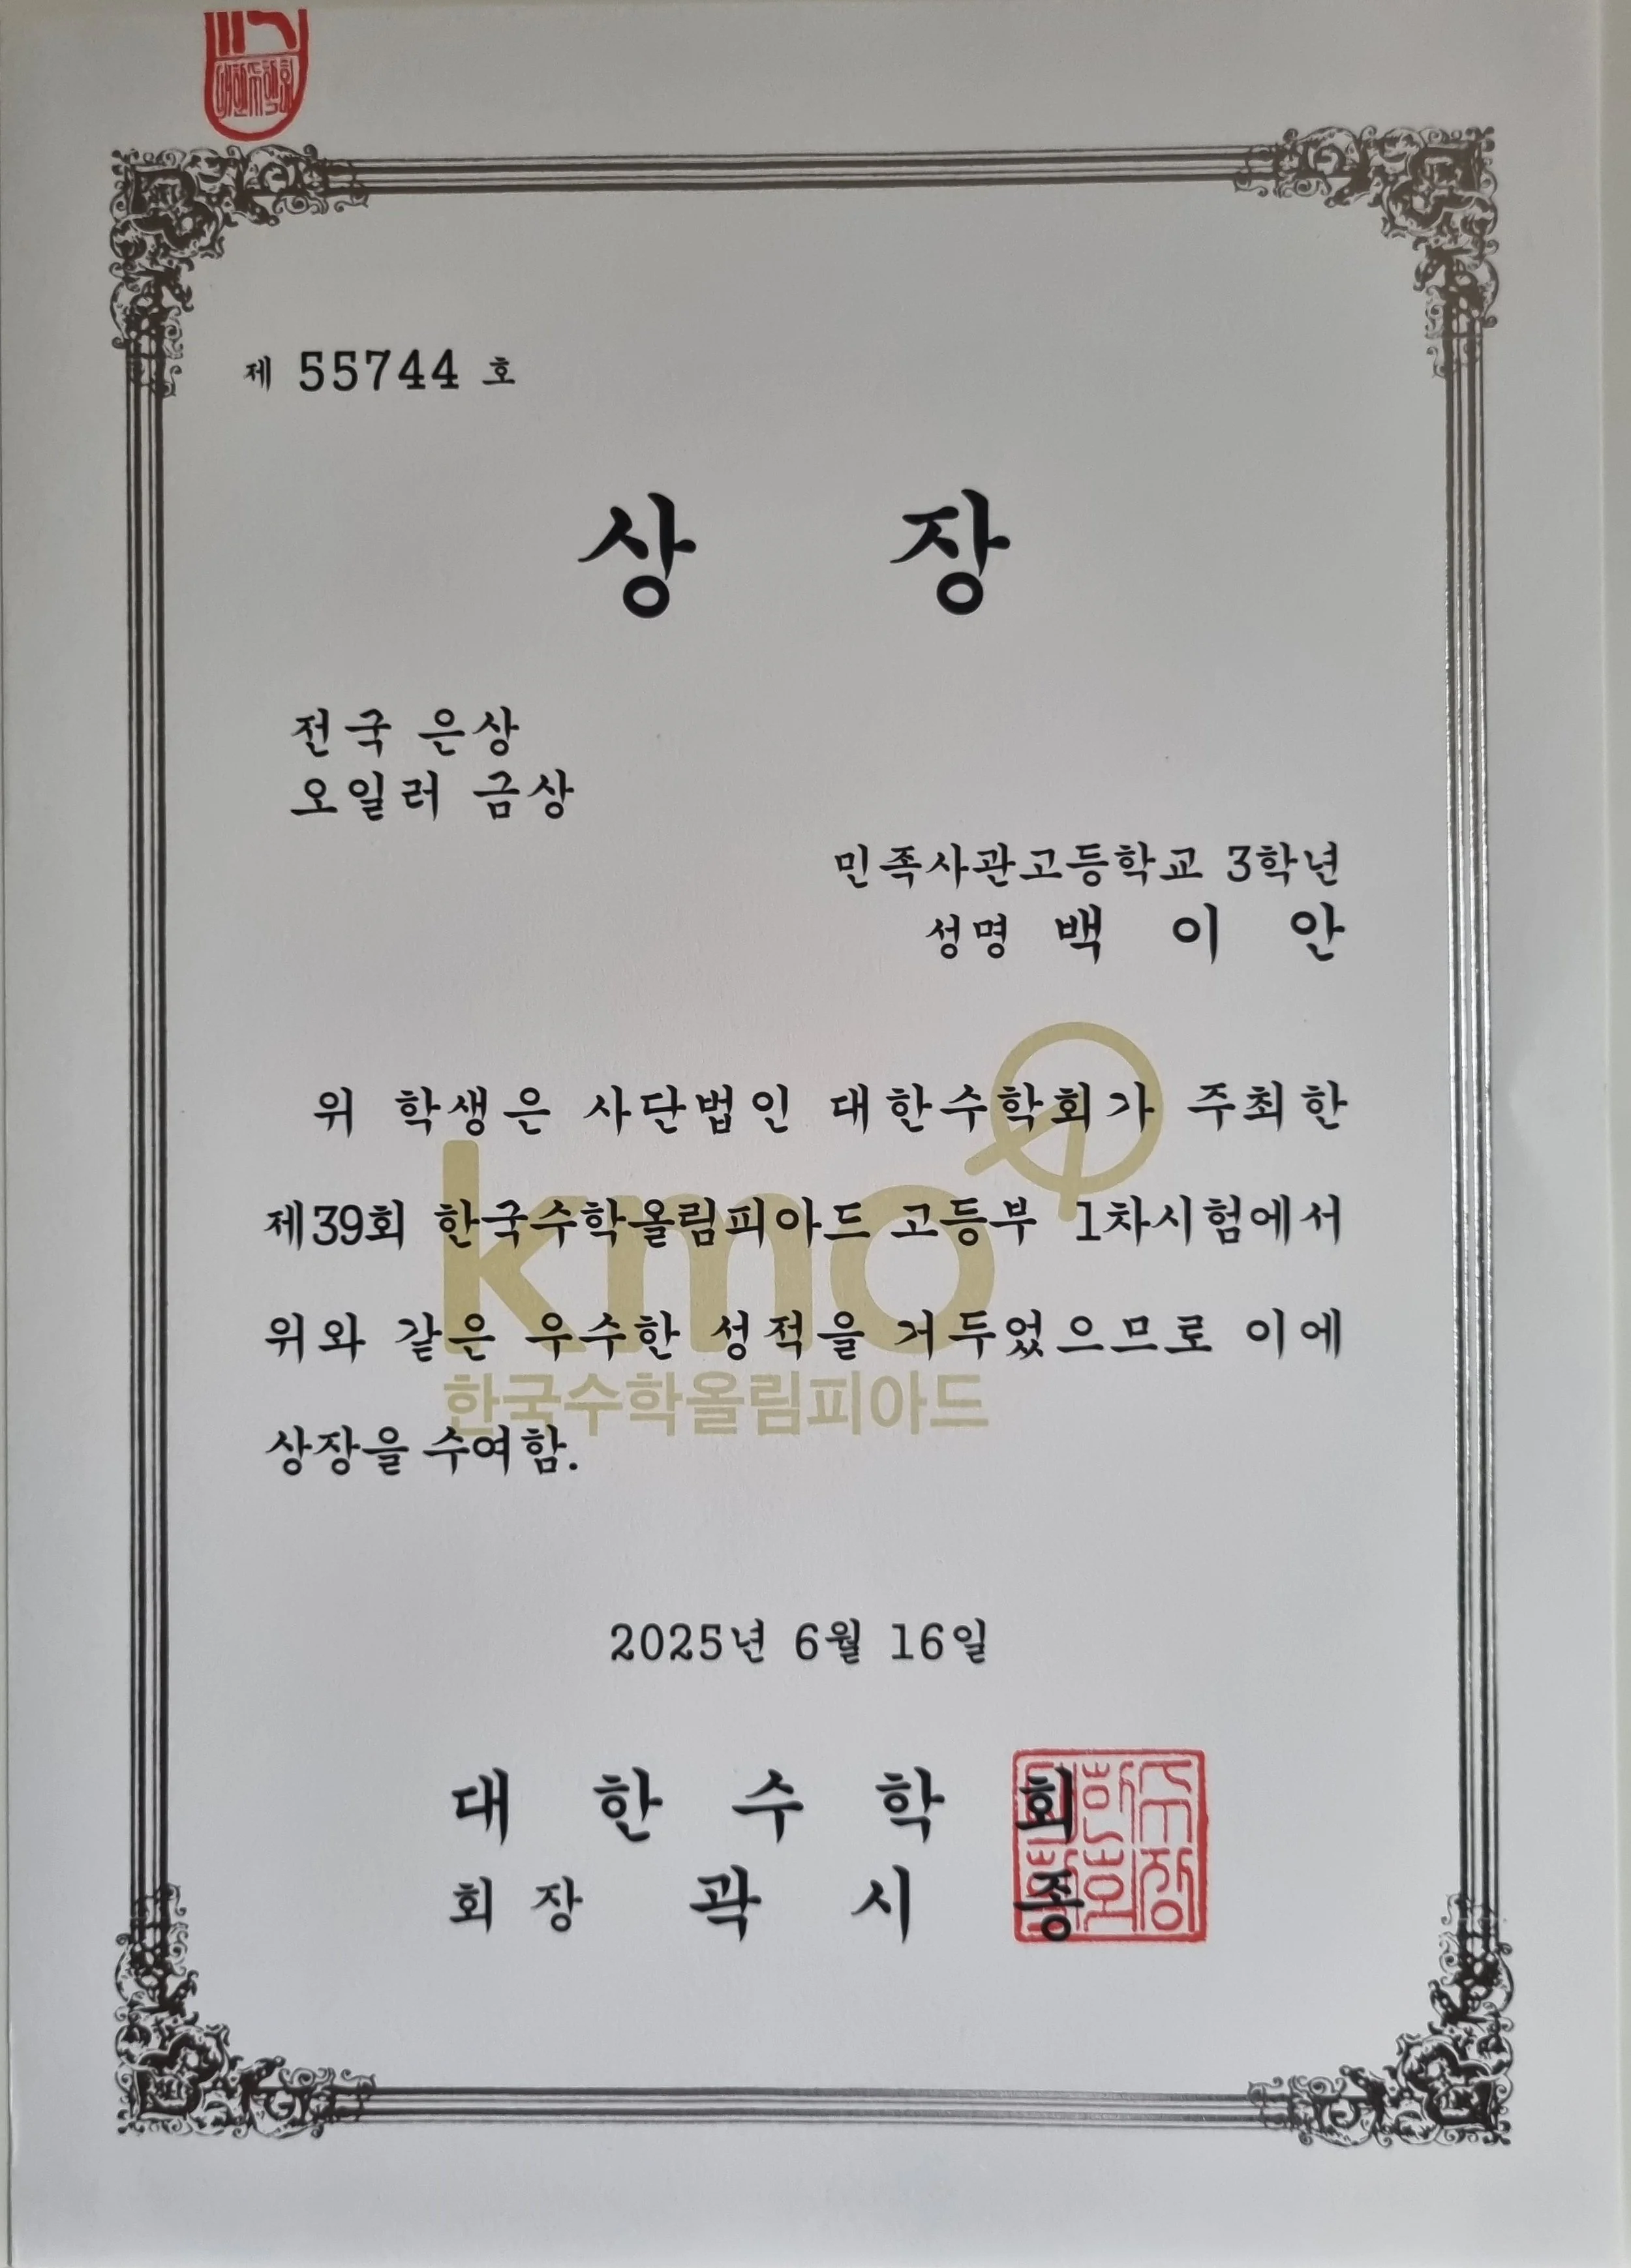 대한수학회
제 55744 호
상 장
전국 은상
오일러 금상
민족사관고등학교 3학년
성명 백 이 안
위 학생은 사단법인 대한수학회가 주최한
제39회 한국수학올림피아드 고등부 1차시험에서
위와 같은 우수한 성적을 거두었으므로 이에
상장을 수여함.
kmo
한국수학올림피아드
2025년 6월 16일
대 한 수 학 회
회 장 곽 시 종